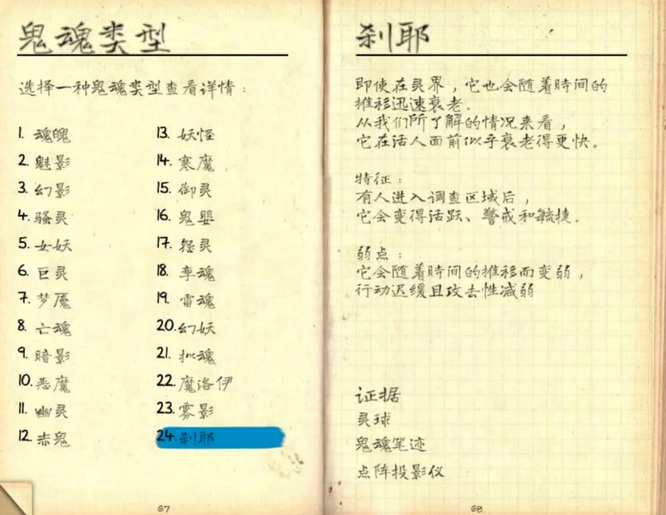 鬼魂类型
选择一种鬼魂类型查看详情：
1. 魂魄
2. 魅影
3. 幻影
4. 骚灵
5. 女妖
6. 巨灵
7. 梦魇
8. 亡魂
9. 暗影
10. 恶魔
11. 幽灵
12. 赤鬼
13. 妖怪
14. 寒魔
15. 御灵
16. 鬼婴
17. 怨灵
18. 孪魂
19. 雷魂
20. 幻妖
21. 拟魂
22. 魔洛伊
23. 雾影
24. 刹耶
67
刹耶
即使在灵界，它也会随着时间的
推移迅速衰老。
从我们所了解的情况来看，
它在活人面前似乎衰老得更快。
特征：
有人进入调查区域后，
它会变得活跃、警戒和敏捷。
弱点：
它会随着时间的推移而变弱，
行动迟缓且攻击性减弱
证据
灵球
鬼魂笔迹
点阵投影仪
68